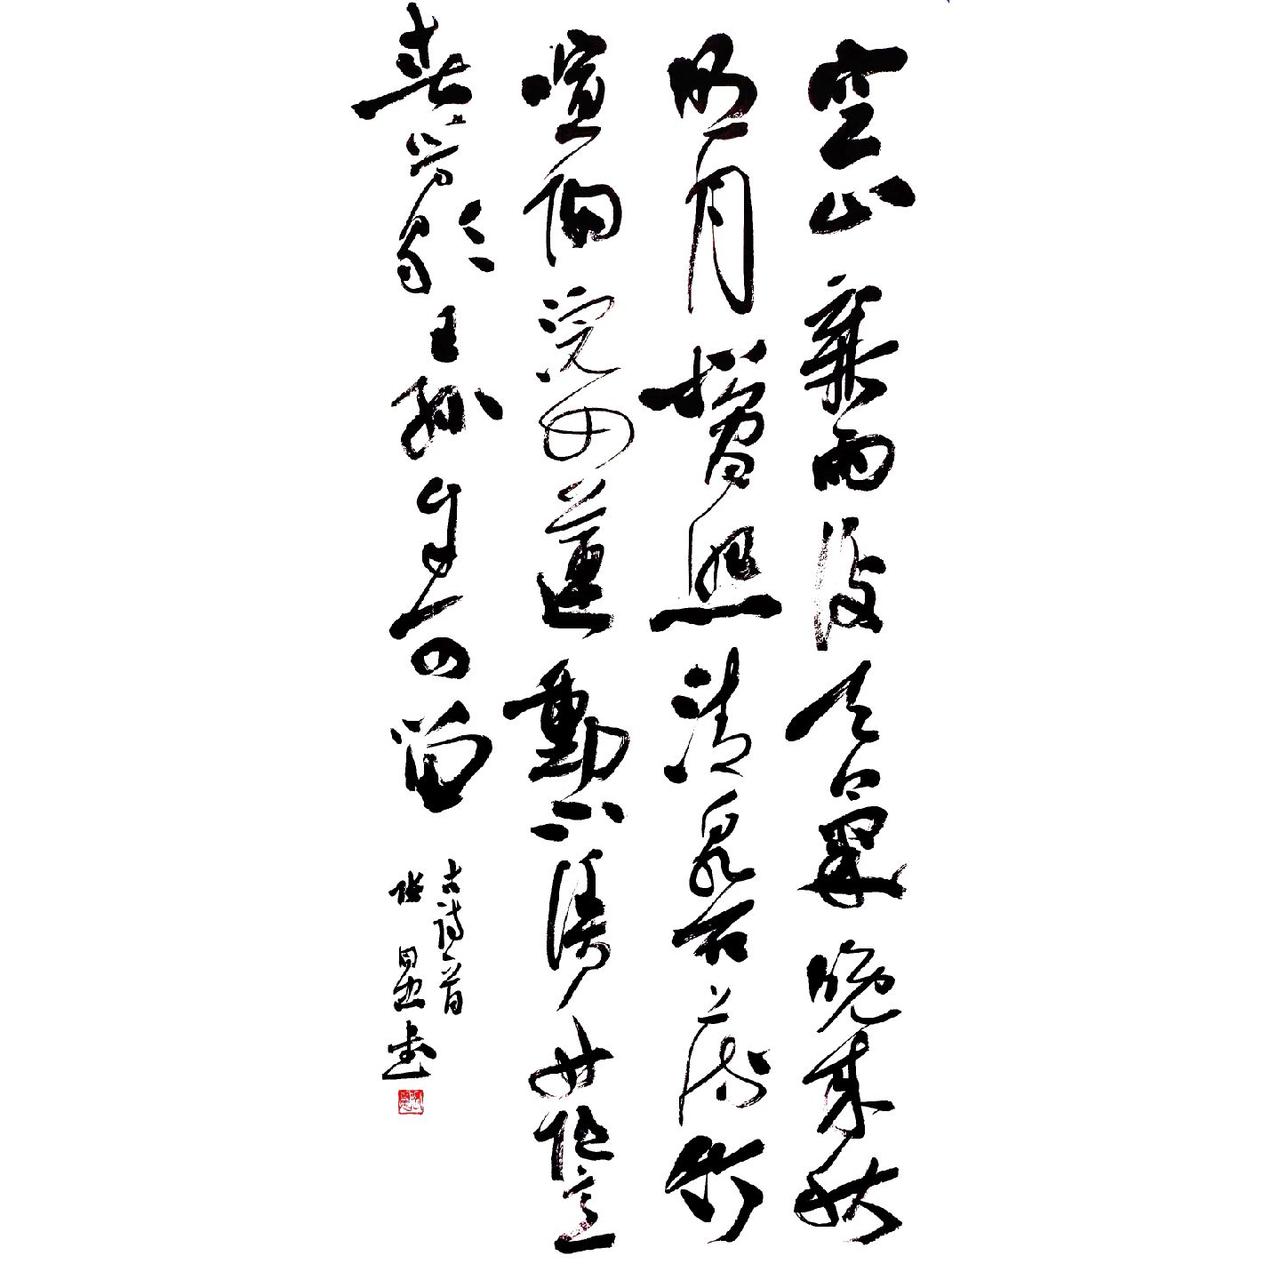 空山新雨後天氣晚來秋
明月松間照清泉石上流竹
喧歸浣女蓮動下漁舟隨意
春芳歇王孫自可留
古詩一首
張書